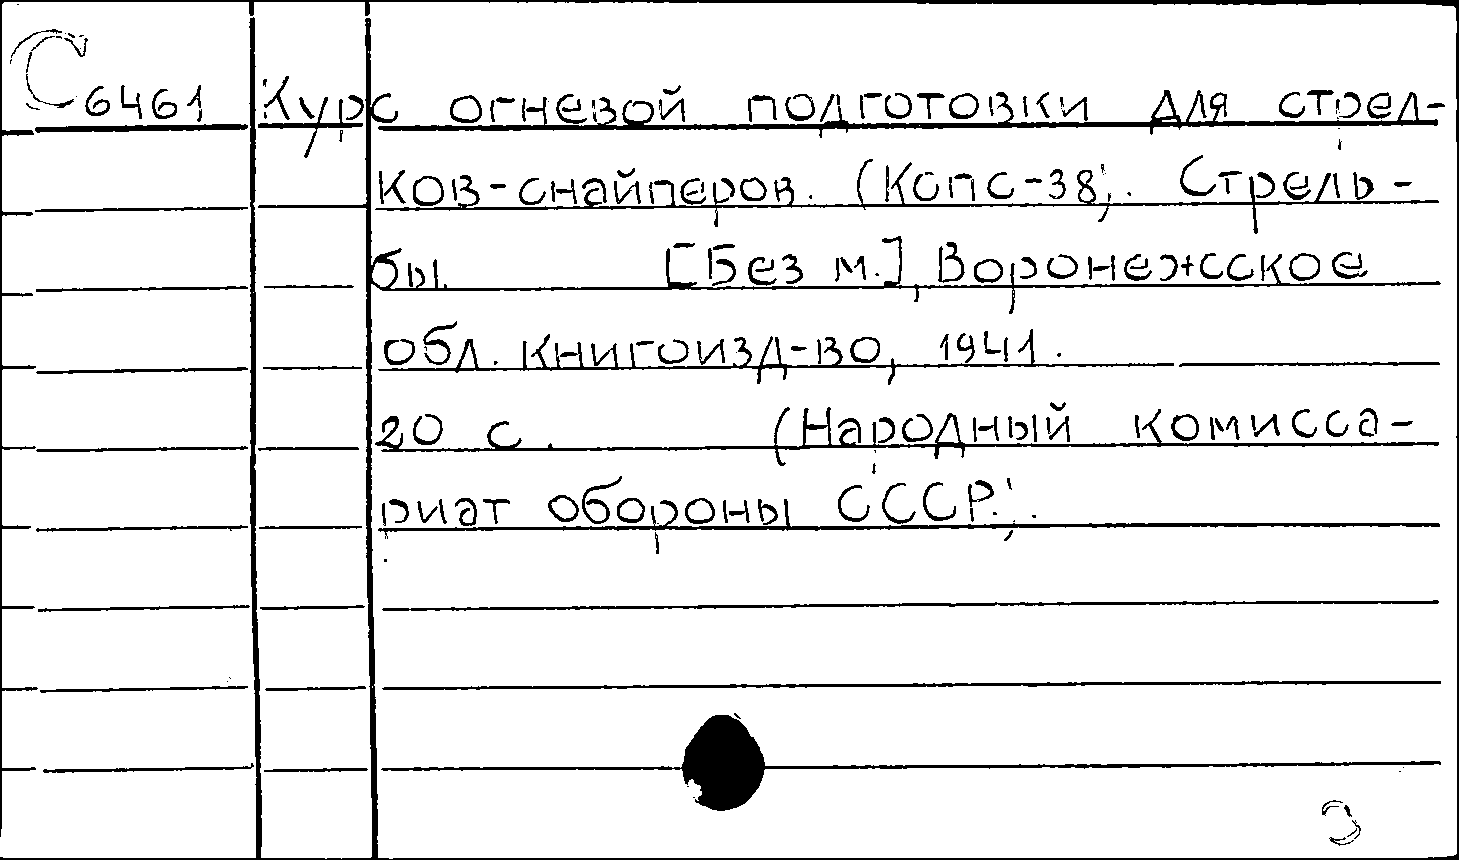 С 6461 Курс огневой подготовки для стрел-
ков-снайперов. (Копс-38). Стрель-
бы. [Без м.], Воронежсское
обл. книгоизд-во, 1941.
20 с. (Народный комисса-
риат обороны СССР).
Э